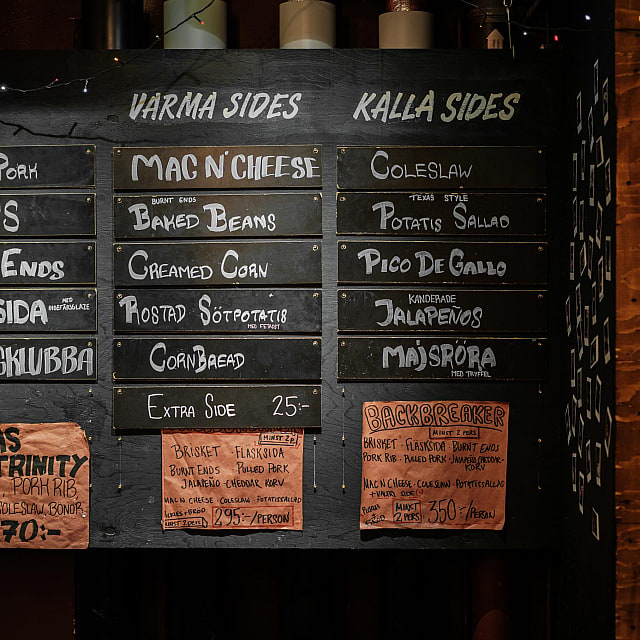 PORK
S
ENDS
SIDA
MED
INGEFÄRSGLAZE
SKLUBBA
AS
TRINITY
PORK RIB
COLESLAW, BONOR
70:-
VARMA SIDES
MAC N' CHEESE
BURNT ENDS
BAKED BEANS
CREAMED CORN
ROSTAD SÖTPOTATIS
MED FETAOST
CORNBREAD
EXTRA SIDE 25:-
MINST 2 P.
BRISKET FLÄSKSIDA
BURNT ENDS PULLED PORK
JALAPEÑO-CHEDDAR KORV
MAC N CHEESE · COLESLAW · POTATISSALLAD
MINST 2 PERS
295:-/PERSON
KALLA SIDES
COLESLAW
TEXAS STYLE
POTATIS SALLAD
PICO DE GALLO
KANDERADE
JALAPEÑOS
MAJSRÖRA
MED TRYFFEL
BACKBREAKER
MINST 2 PERS
BRISKET · FLÄSKSIDA BURNT ENDS
PORK RIB · PULLED PORK · JALAPEÑO CHEDDAR
KORV
MAC N CHEESE · COLESLAW · POTATISSALLAD
MINST
2 PERS
350:-/PERSON